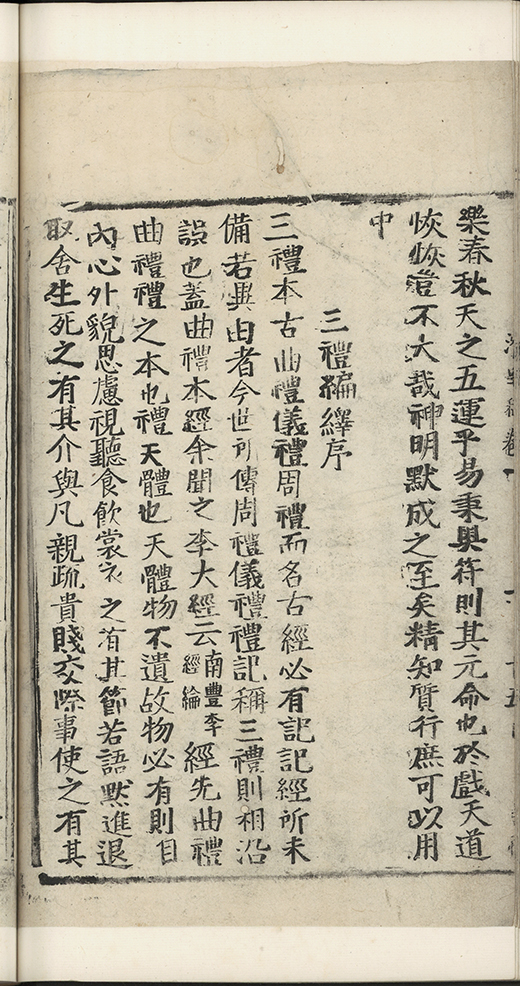 樂春秋天之五運乎易秉與符則其元命也於戲天道
恢恢豈不大哉神明默成之至矣精知質行庶可以用
中
三禮編繹序
三禮本古曲禮儀禮周禮而名古經必有記記經所未
備若異由者今世所傳周禮儀禮禮記稱三禮則相沿
誤也蓋曲禮本經余聞之李大經云南豐李經綸經先曲禮
曲禮禮之本也禮天體也天體物不遺故物必有則自
內心外貌思慮視聽食飲裳衣之有其節若語默進退
取舍生死之有其介與凡親疏貴賤交際事使之有其